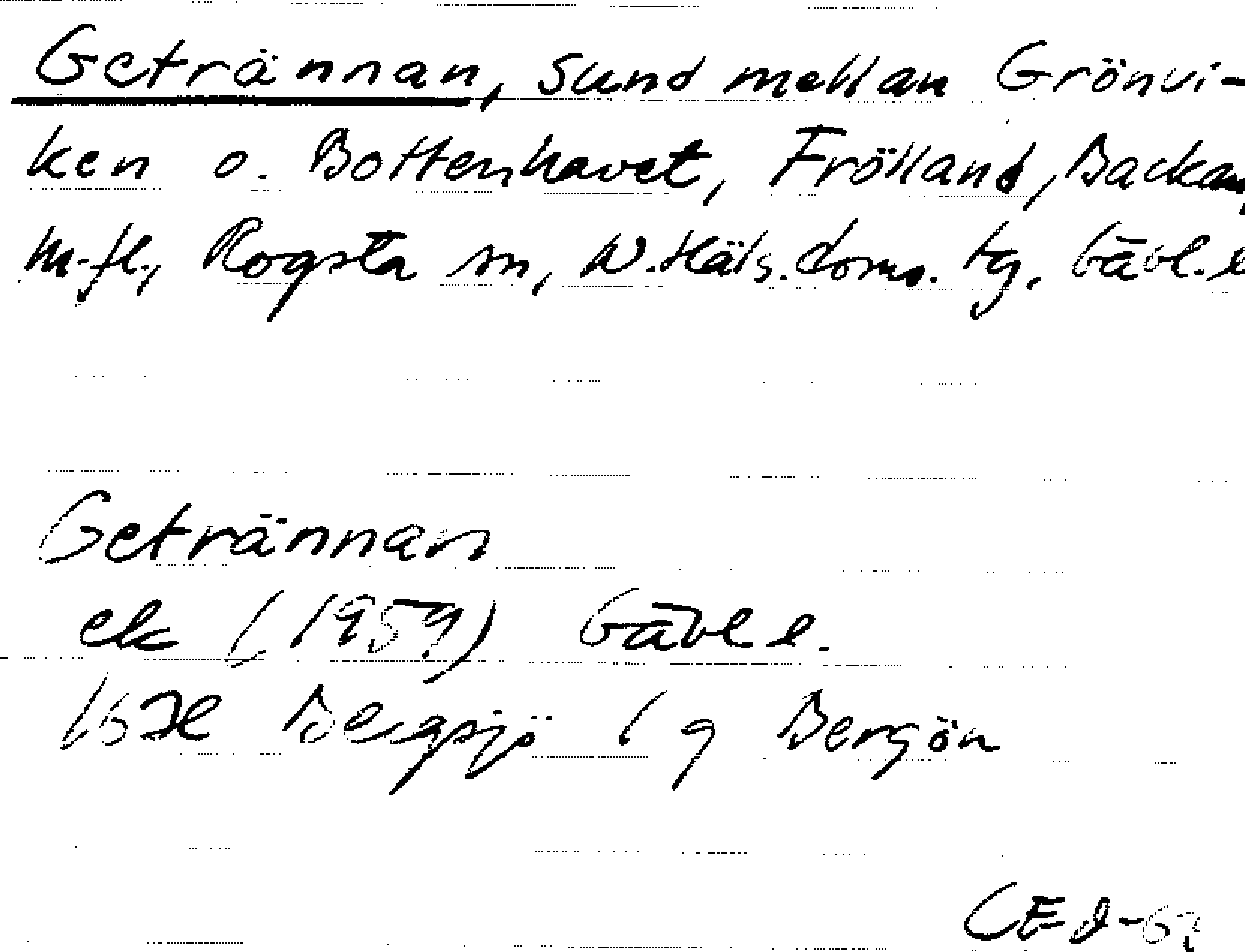 Getrännan, sund mellan Grönvi-
ken o. Bottenhavet, Frölland, Backa,
m.fl., Rogsta sn, N.Häls. doms. tg. Gävl.l
Getrännan
ek (1959) Gävl l.
Bergsjö 1 g Bergön